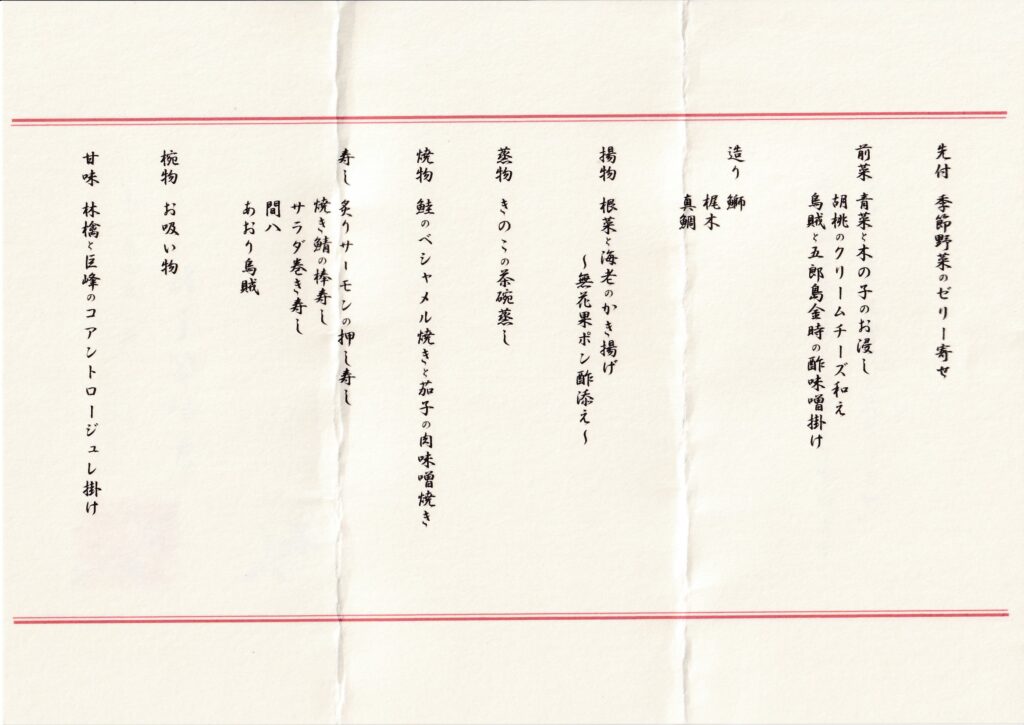 先付 季節野菜のゼリー寄せ
前菜 青菜と木の子のお浸し
胡桃のクリームチーズ和え
烏賊と五郎島金時の酢味噌掛け
造り 鰤
梶木
真鯛
揚物 根菜と海老のかき揚げ
～無花果ポン酢添え～
蒸物 きのこの茶碗蒸し
焼物 鮭のベシャメル焼きと茄子の肉味噌焼き
寿し 炙りサーモンの押し寿し
焼き鯖の棒寿し
サラダ巻き寿し
間八
あおり烏賊
椀物 お吸い物
甘味 林檎と巨峰のコアントロージュレ掛け